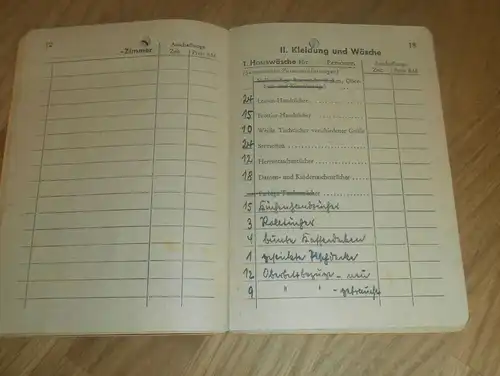 12
-Zimmer
Anschaffungs-
Zeit Preis RM
II. Kleidung und Wäsche
13
1. Hauswäsche für Personen
Anschaffungs-
Zeit Preis RM
24 Leinen-Handtücher
15 Frottier-Handtücher
10 Weiße Tischtücher verschiedener Größe
24 Servietten
12 Herrentaschentücher
18 Damen- und Kindertaschentücher
Farbige Tischtücher
15 Küchenhandtücher
3
4 bunte Kaffeedecken
1 gestickte
12 Oberbettbezüge - neu
9 " " - gebraucht